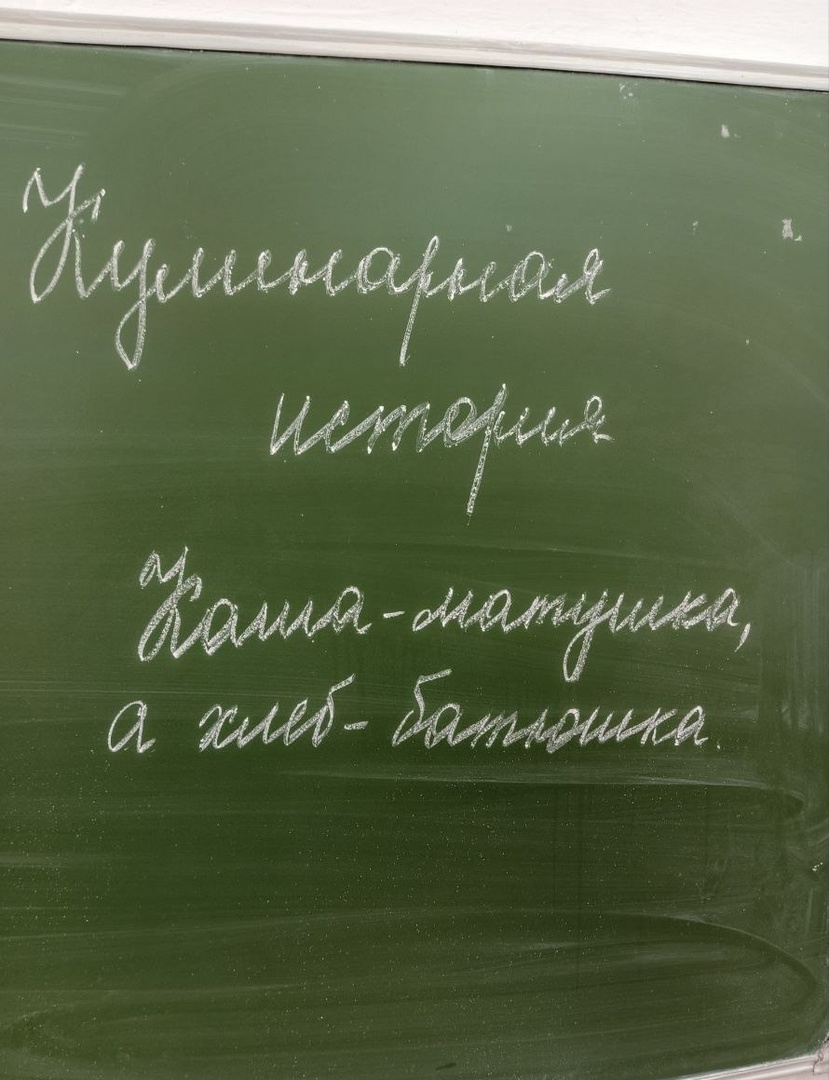 Кулинарная
история
Каша-матушка,
а хлеб-батюшка.